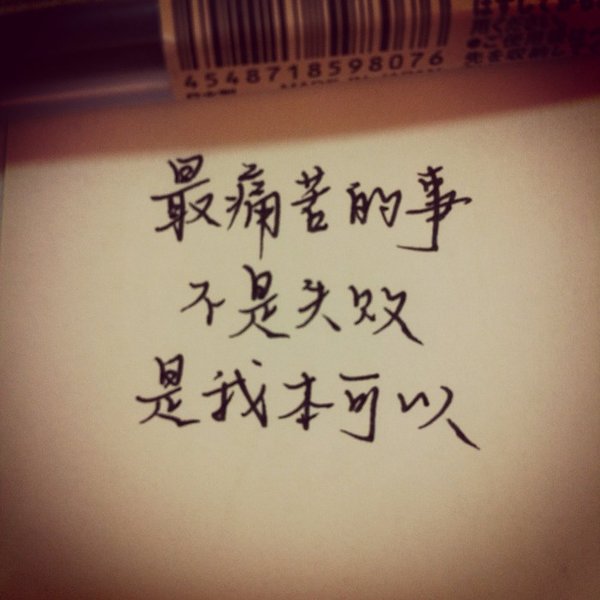 4548718598076
最痛苦的事
不是失败
是我本可以